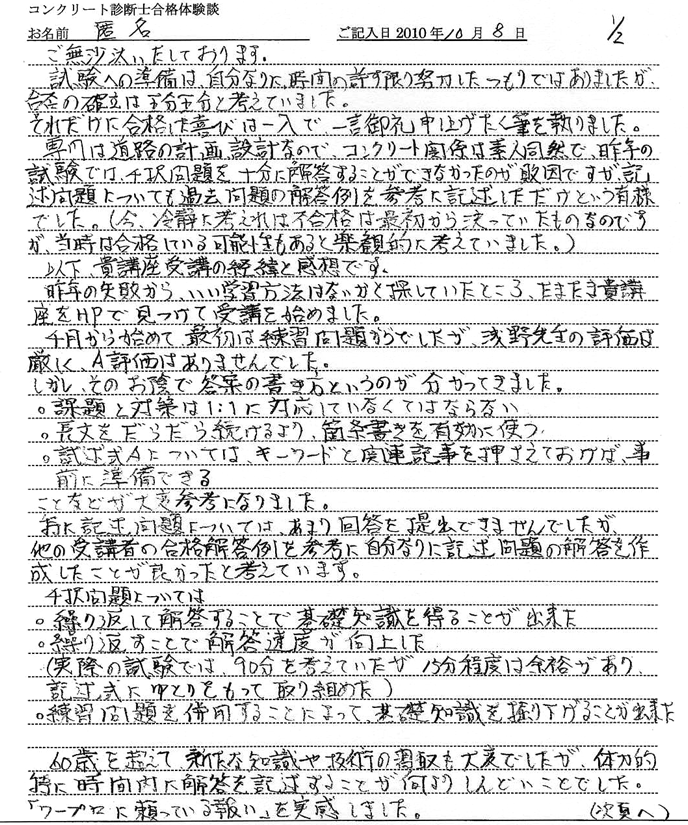 コンクリート診断士合格体験談
お名前 匿名 ご記入日 2010年10月8日 1/2
ご無沙汰いたしております。
試験への準備は、自分なりに、時間の許す限り努力したつもりではありましたが、
合否の確立は五分五分と考えていました。
それだけに合格は喜びは一入で、一言御礼申上げたく筆を執りました。
専門は道路の計画、設計なので、コンクリート関係は素人同然で、昨年の
試験では、4択問題を十分に解答することができなかったのが敗因ですが、記
述問題についても過去問題の解答例を参考に記述しただけという有様
でした。(今、冷静に考えれば不合格は最初から決っていたものなのです
が、当時は合格している可能性もあると楽観的に考えていました。)
以下、貴講座受講の経緯と感想です。
昨年の失敗から、いい学習方法はないかと探していたところ、たまたま貴講
座をHPで見つけて受講を始めました。
4月から始めて、最初は練習問題からでしたが、浅野先生の評価は
厳しく、A評価はありませんでした。
しかし、そのお陰で答案の書き方というのが分かってきました。
○課題と対策は1:1に対応していなくてはならない
○長文をだらだら続けるより、箇条書きを有効に使う
○記述式Aについては、キーワードと関連記事を押さえておけば、事
前に準備できる
ことなどが大変参考になりました。
特に記述問題については、あまり回答を提出できませんでしたが、
他の受講者の合格解答例を参考に自分なりに記述問題の解答を作
成したことが良かったと考えています。
4択問題については
○繰り返して解答することで基礎知識を得ることが出来た
○繰り返すことで解答速度が向上した
(実際の試験では、90分を考えていたが15分程度は余裕があり、
記述式にゆとりをもって取り組めた)
○練習問題を併用することによって、基礎知識を掘り下げることが出来た
60歳を超えて新たな知識や技術の習取も大変でしたが、体力的
特に時間内に解答を記述することが何よりしんどいことでした。
「ワープロに頼っている報い」を実感しました。 (次頁へ)